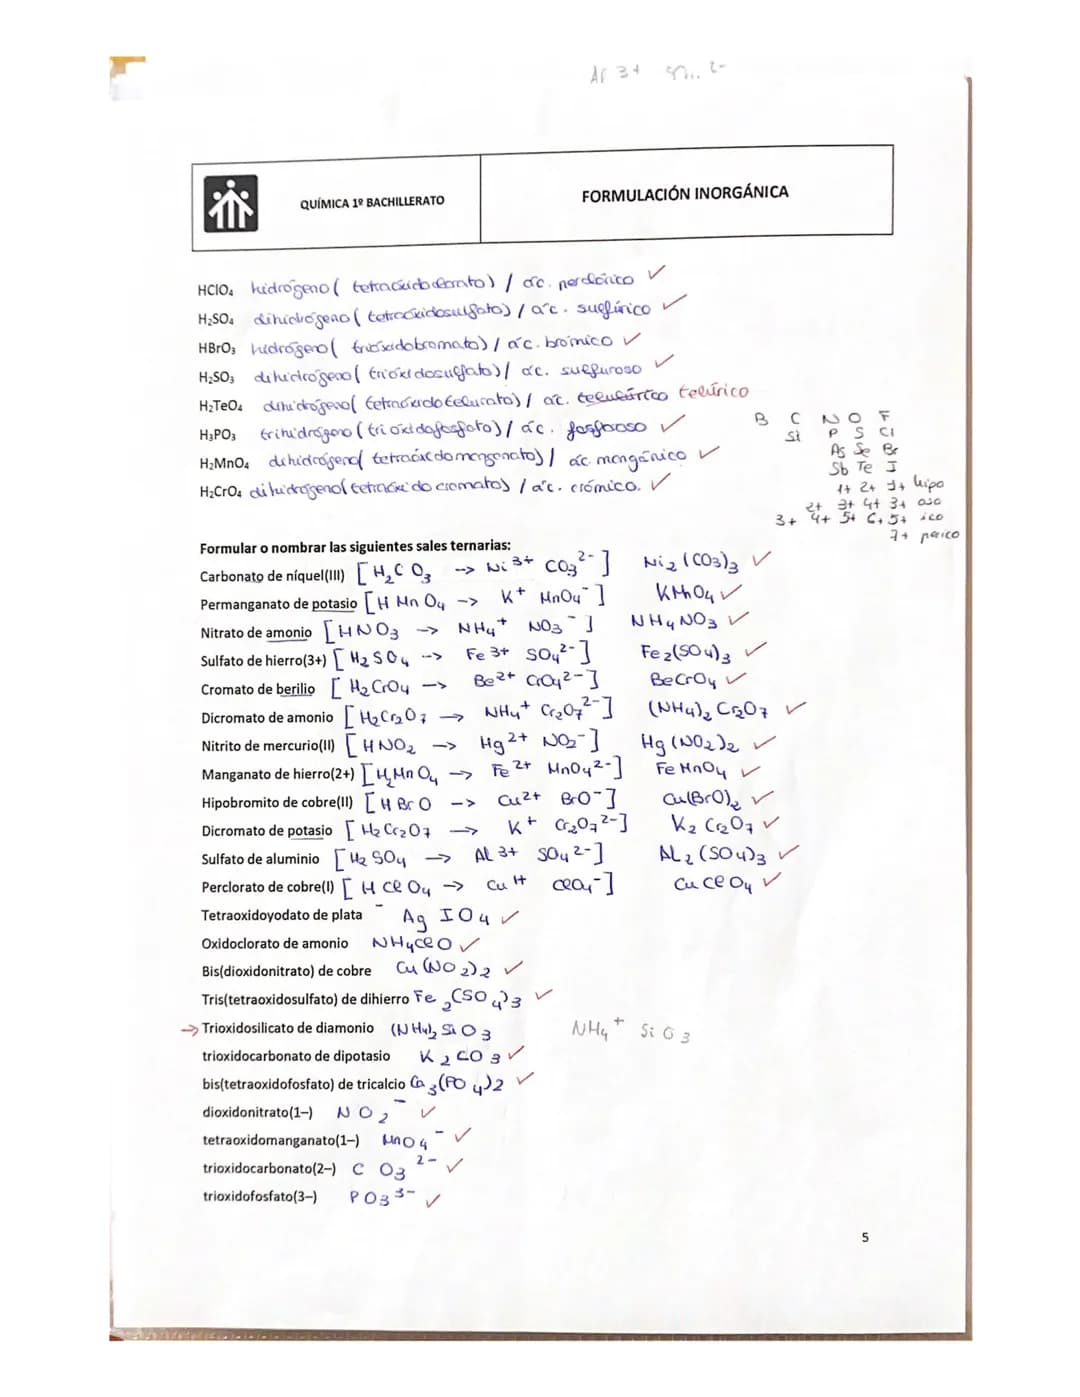 Al 3+ 2-
QUÍMICA 1º BACHILLERATO
FORMULACIÓN INORGÁNICA
HClO₄ hidrógeno( tetraoxidoclorato) / ác. perclórico ✓
H₂SO₄ dihidrógeno( tetraoxidosulfato) / ác. sulfúrico ✓
HBrO₃ hidrógeno( trioxidobromato) / ác. brómico ✓
H₂SO₃ dihidrógeno( trioxidosulfato) / ác. sulfuroso ✓
H₂TeO₄ dihidrógeno( tetraoxidotelurato) / ác. telúrico
H₃PO₃ trihidrógeno (trioxidofosfato) / ác. fosforoso ✓
H₂MnO₄ dihidrógeno( tetraoxidomanganato) / ác. mangánico ✓
H₂CrO₄ dihidrógeno( tetraoxido cromato) / ác. crómico. ✓
B C N O F
Si P S Cl
As Se Br
Sb Te I
1+ 2+ 1+ hipo
2+ 3+ 4+ 3+ oso
3+ 4+ 5+ 6+ 5+ ico
7+ perico
Formular o nombrar las siguientes sales ternarias:
Carbonato de níquel(III) [H₂CO₃ -> Ni³⁺ CO₃²⁻] Ni₂(CO₃)₃ ✓
Permanganato de potasio [HMnO₄ -> K⁺ MnO₄⁻] KMnO₄ ✓
Nitrato de amonio [HNO₃ -> NH₄⁺ NO₃⁻] NH₄NO₃ ✓
Sulfato de hierro(3+) [H₂SO₄ --> Fe³⁺ SO₄²⁻] Fe₂(SO₄)₃ ✓
Cromato de berilio [H₂CrO₄ -> Be²⁺ CrO₄²⁻] BeCrO₄ ✓
Dicromato de amonio [H₂Cr₂O₇ -> NH₄⁺ Cr₂O₇²⁻] (NH₄)₂Cr₂O₇ ✓
Nitrito de mercurio(II) [HNO₂ -> Hg²⁺ NO₂⁻] Hg(NO₂)₂ ✓
Manganato de hierro(2+) [H₂MnO₄ -> Fe²⁺ MnO₄²⁻] FeMnO₄ ✓
Hipobromito de cobre(II) [HBrO -> Cu²⁺ BrO⁻] Cu(BrO)₂ ✓
Dicromato de potasio [H₂Cr₂O₇ -> K⁺ Cr₂O₇²⁻] K₂Cr₂O₇ ✓
Sulfato de aluminio [H₂SO₄ -> Al³⁺ SO₄²⁻] Al₂(SO₄)₃ ✓
Perclorato de cobre(I) [HClO₄ -> Cu¹⁺ ClO₄⁻] CuClO₄ ✓
Tetraoxidoyodato de plata AgIO₄ ✓
Oxidoclorato de amonio NH₄ClO ✓
Bis(dioxidonitrato) de cobre Cu(NO₂)₂ ✓
Tris(tetraoxidosulfato) de dihierro Fe₂(SO₄)₃ ✓
-> Trioxidosilicato de diamonio (NH₄)₂SiO₃ NH₄⁺ SiO₃
trioxidocarbonato de dipotasio K₂CO₃ ✓
bis(tetraoxidofosfato) de tricalcio Ca₃(PO₄)₂ ✓
dioxidonitrato(1−) NO₂⁻ ✓
tetraoxidomanganato(1−) MnO₄⁻ ✓
trioxidocarbonato(2−) CO₃²⁻ ✓
trioxidofosfato(3−) PO₃³⁻ ✓
5